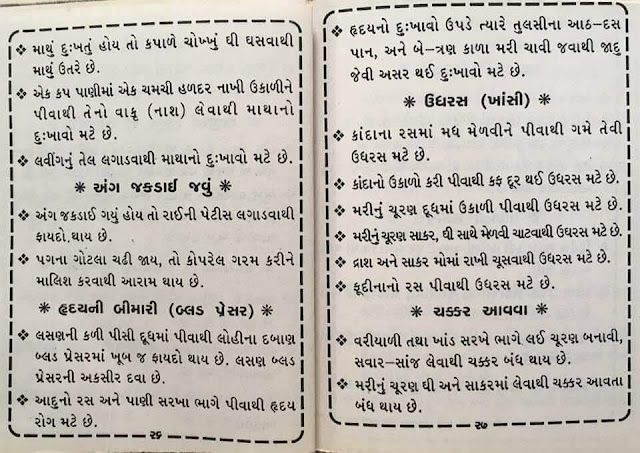 ❖ માથું દુઃખતું હોય તો કપાળે ચોખ્ખું ઘી ઘસવાથી
માથું ઉતરે છે.
❖ એક કપ પાણીમાં એક ચમચી હળદર નાખી ઉકાળીને
પીવાથી તેનો વાફ (નાશ) લેવાથી માથાનો
દુઃખાવો મટે છે.
❖ લવીંગનું તેલ લગાડવાથી માથાનો દુઃખાવો મટે છે.
❋ અંગ જકડાઈ જવું ❋
❖ અંગ જકડાઈ ગયું હોય તો રાઈની પેટીસ લગાડવાથી
ફાયદો થાય છે.
❖ પગના ગોટલા ચઢી જાય, તો કોપરેલ ગરમ કરીને
માલિશ કરવાથી આરામ થાય છે.
❋ હૃદયની બીમારી (બ્લડ પ્રેસર) ❋
❖ લસણની કળી પીસી દૂધમાં પીવાથી લોહીના દબાણ
બ્લડ પ્રેસરમાં ખૂબ જ ફાયદો થાય છે. લસણ બ્લડ
પ્રેસરની અકસીર દવા છે.
❖ આદુનો રસ અને પાણી સરખા ભાગે પીવાથી હૃદય
રોગ મટે છે.
૨૬
❖ હૃદયનો દુઃખાવો ઉપડે ત્યારે તુલસીના આઠ-દસ
પાન, અને બે-ત્રણ કાળા મરી ચાવી જવાથી જાદુ
જેવી અસર થઈ દુઃખાવો મટે છે.
❋ ઉધરસ (ખાંસી) ❋
❖ કાંદાના રસમાં મધ મેળવીને પીવાથી ગમે તેવી
ઉધરસ મટે છે.
❖ કાંદાનો ઉકાળો કરી પીવાથી કફ દૂર થઈ ઉધરસ મટે છે.
❖ મરીનું ચૂરણ દૂધમાં ઉકાળી પીવાથી ઉધરસ મટે છે.
❖ મરીનું ચૂરણ સાકર, ઘી સાથે મેળવી ચાટવાથી ઉધરસ મટે છે.
❖ દ્રાશ અને સાકર મોમાં રાખી ચૂસવાથી ઉધરસ મટે છે.
❖ ફૂદીનાનો રસ પીવાથી ઉધરસ મટે છે.
❋ ચક્કર આવવા ❋
❖ વરીયાળી તથા ખાંડ સરખે ભાગે લઈ ચૂરણ બનાવી,
સવાર-સાંજ લેવાથી ચક્કર બંધ થાય છે.
❖ મરીનું ચૂરણ ઘી અને સાકરમાં લેવાથી ચક્કર આવતા
બંધ થાય છે.
૨૭